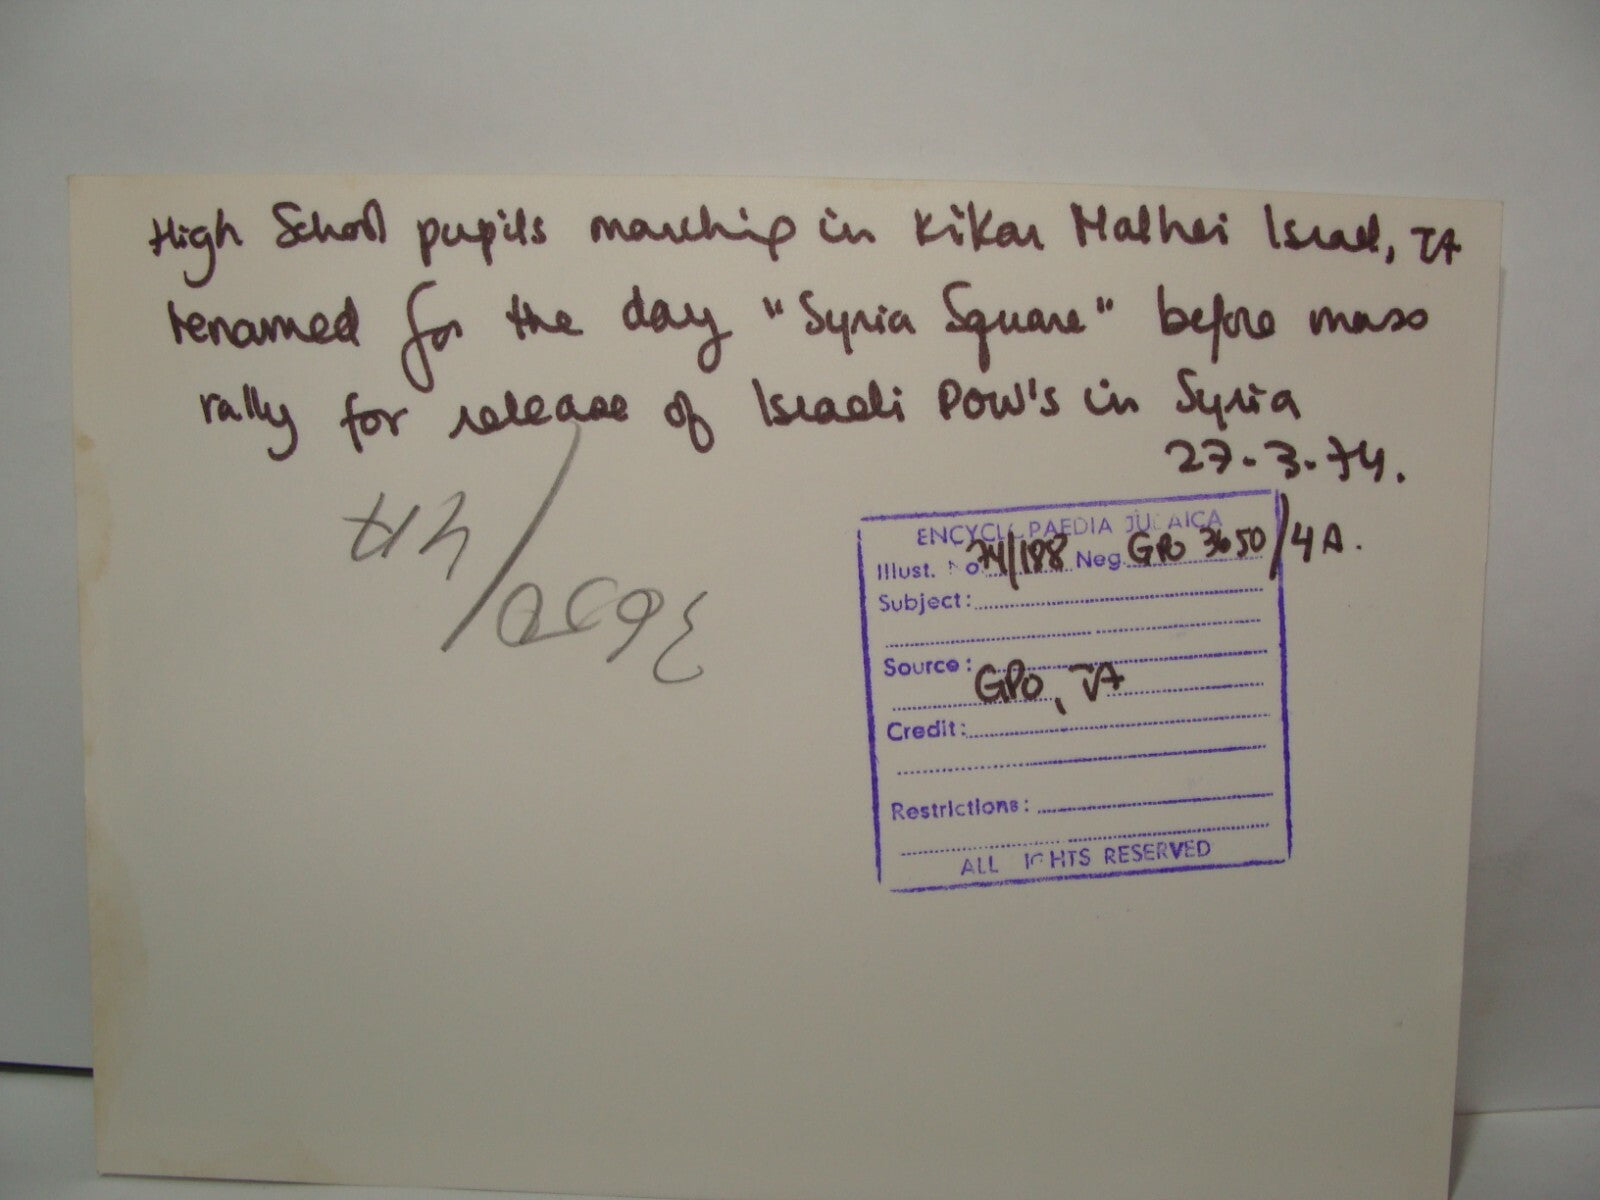 High School pupils marching in Kikar Malhei Israel, TA
renamed for the day "Syria Square" before mass
rally for release of Israeli POW's in Syria
27.3.74.
ENCYCLOPAEDIA JUDAICA
Illust. No 74/188 Neg. GPO 3650/4A.
Subject:
Source:
GPO, TA
Credit:
Restrictions:
ALL RIGHTS RESERVED
3650/4A